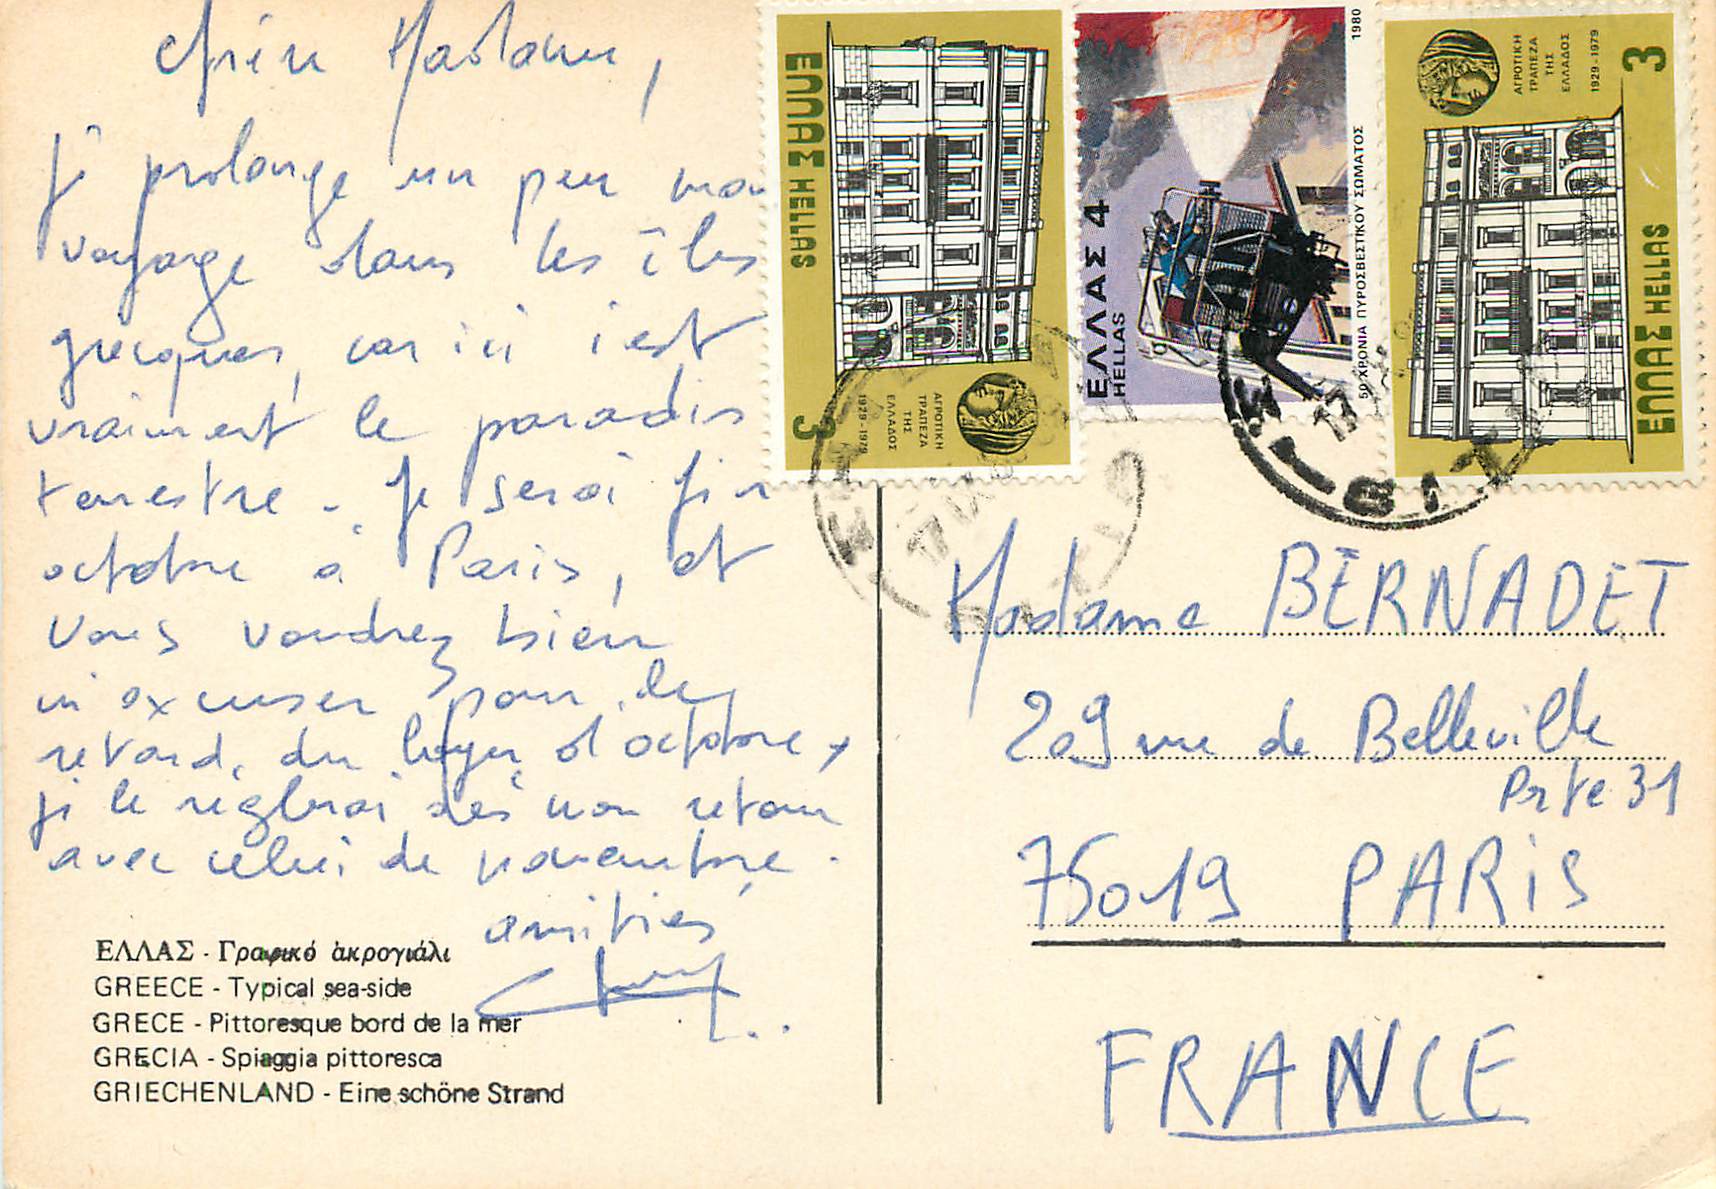 chère Madame,
je prolonge un peu mon
voyage dans les îles
grecques, car ici c'est
vraiment le paradis
terrestre - Je serai fin
octobre à Paris, et
Vous voudrez bien
m'excuser pour le
retard, du loyer d'octobre,
je le réglerai dès mon retour
avec celui de novembre.
amitiés
ΕΛΛΑΣ - Γραφικό ἀκρογιάλι
GREECE - Typical sea-side
GRECE - Pittoresque bord de la mer
GRECIA - Spiaggia pittoresca
GRIECHENLAND - Eine schöne Strand
ΕΛΛΑΣ HELLAS
3
ΑΓΡΟΤΙΚΗ
ΤΡΑΠΕΖΑ
ΤΗΣ
ΕΛΛΑΔΟΣ
1929-1979
ΕΛΛΑΣ 4
HELLAS
50 ΧΡΟΝΙΑ ΠΥΡΟΣΒΕΣΤΙΚΟΥ ΣΩΜΑΤΟΣ
1980
ΕΛΛΑΣ HELLAS
3
ΑΓΡΟΤΙΚΗ
ΤΡΑΠΕΖΑ
ΤΗΣ
ΕΛΛΑΔΟΣ
1929-1979
17 IX
17
Madame BERNADET
209 rue de Belleville
Prte 31
75019 PARIS
FRANCE